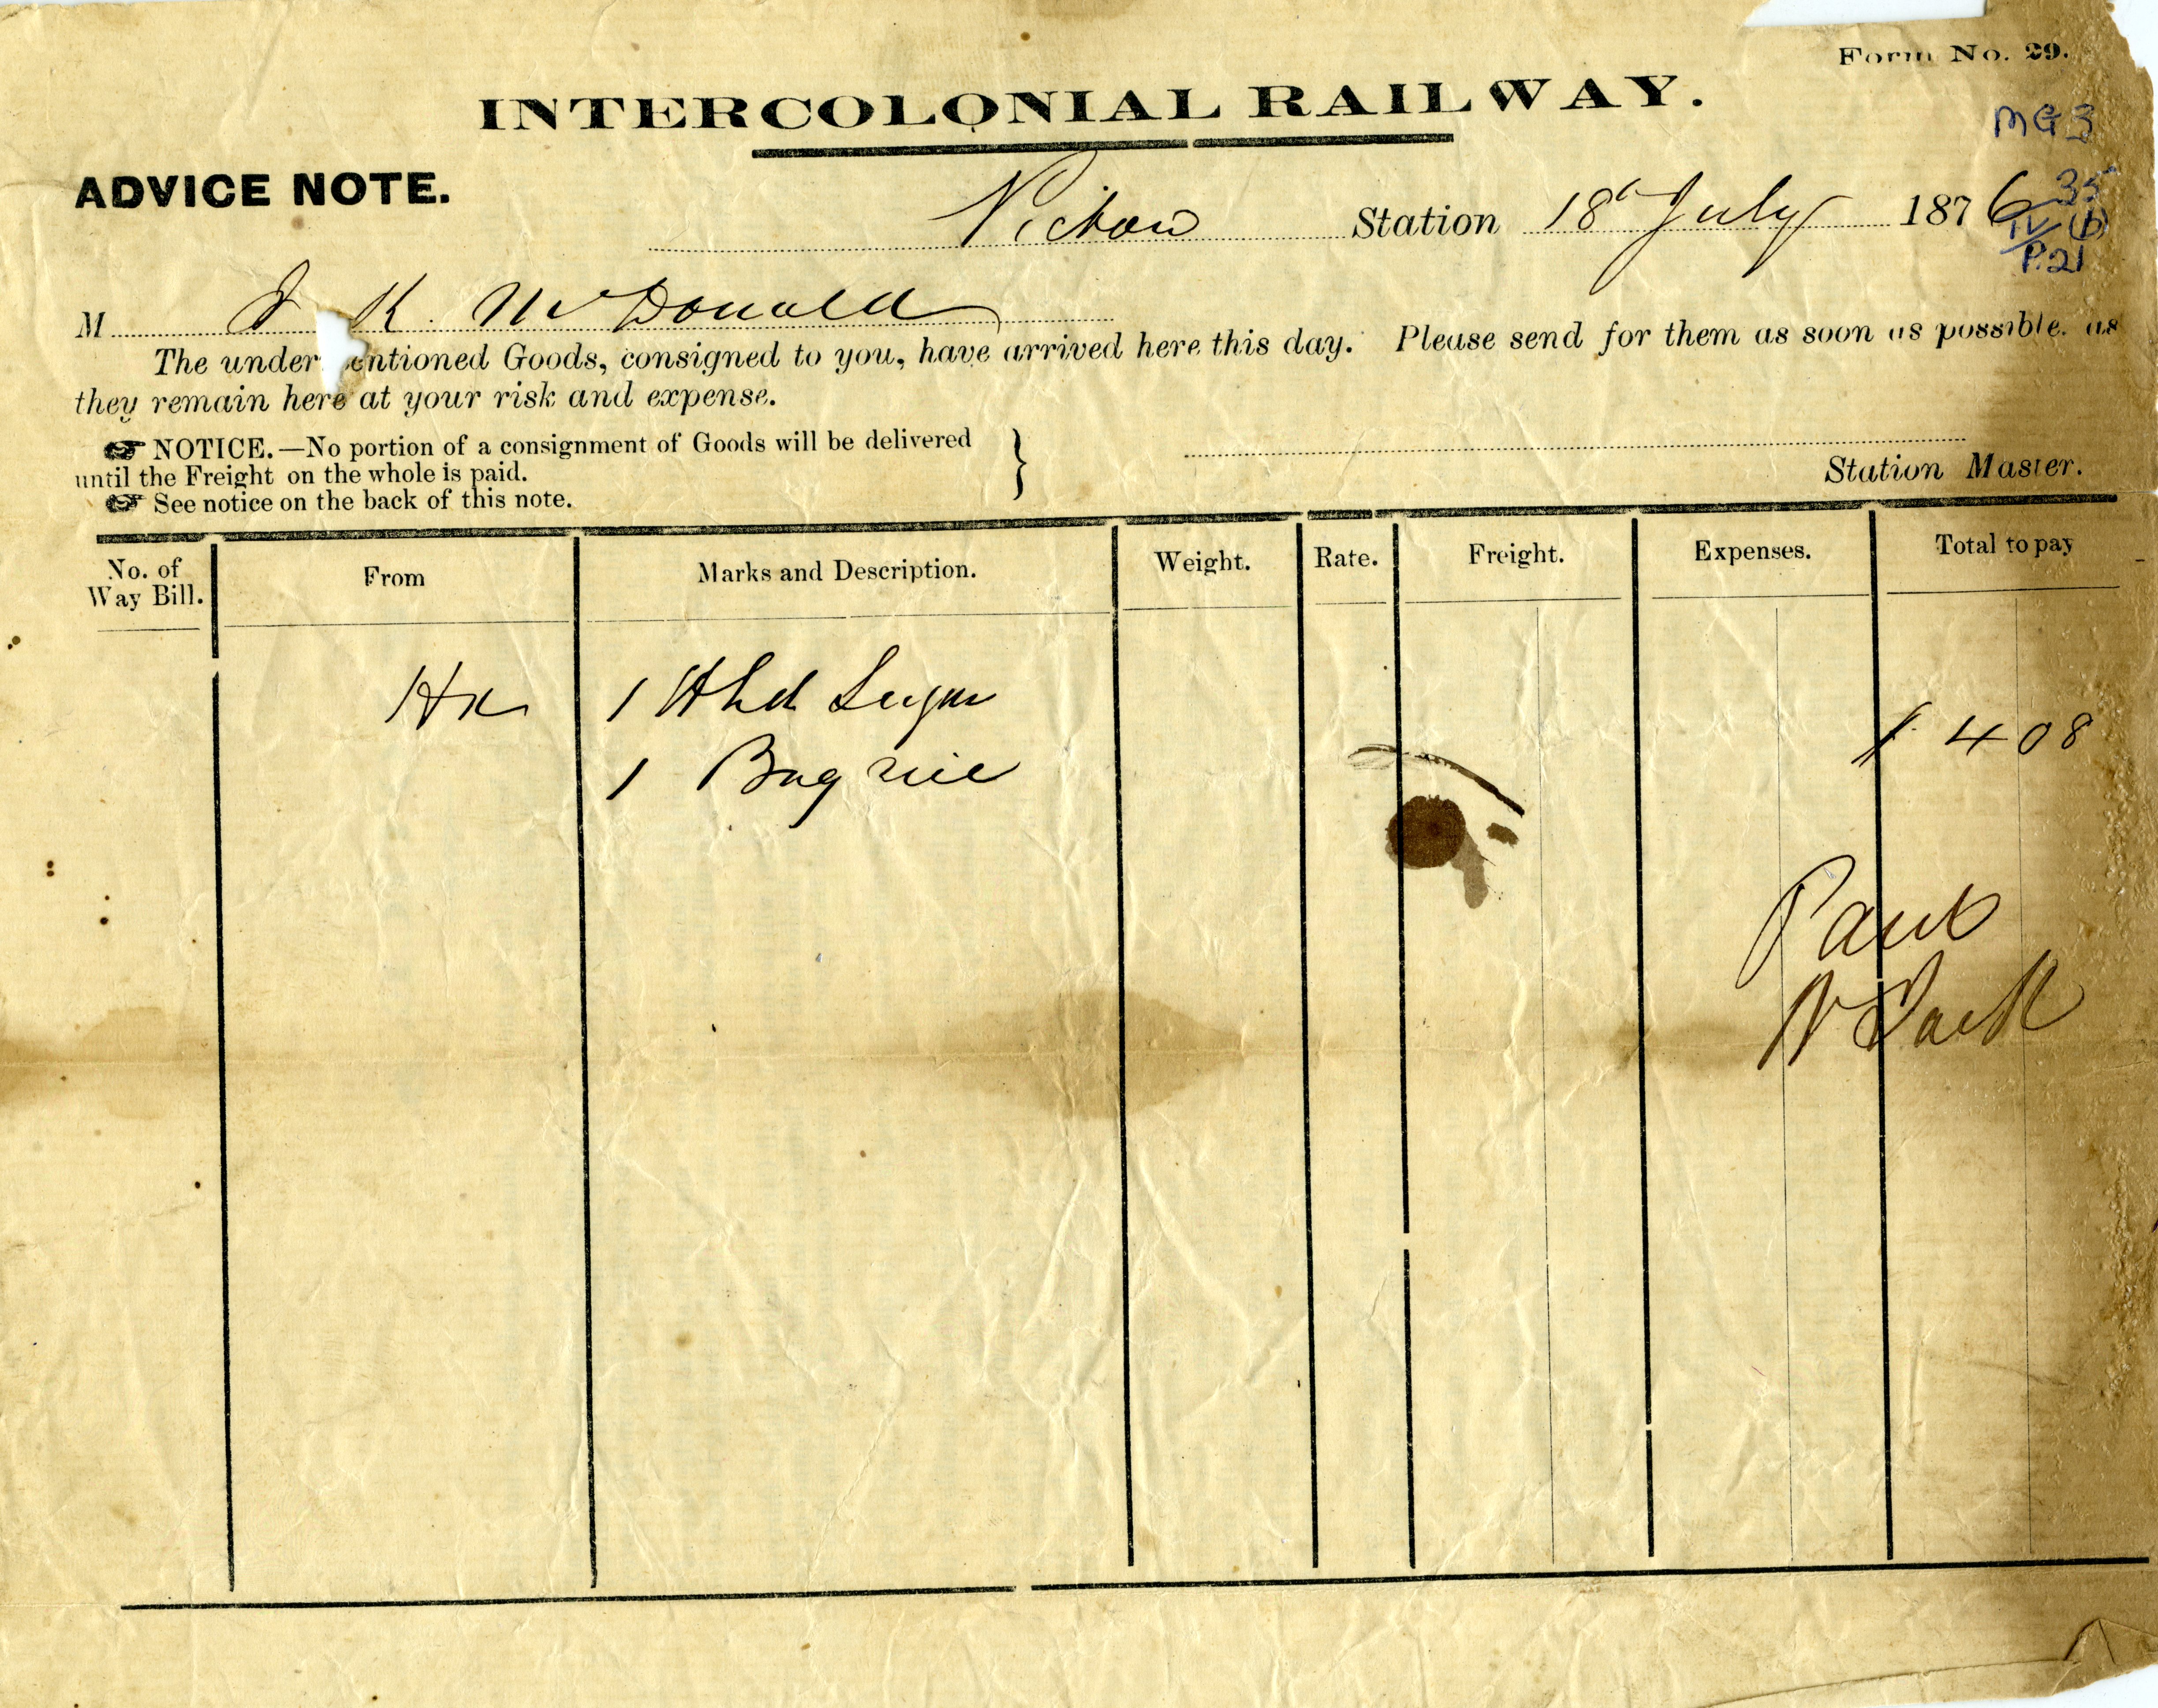 Form No. 29.
INTERCOLONIAL RAILWAY.
MG 3
ADVICE NOTE.
Pictou Station 18th July 1876
35
IV (b)
P.21
M J K. McDonald
The under entioned Goods, consigned to you, have arrived here this day. Please send for them as soon as possible. as
they remain here at your risk and expense.
☞ NOTICE.—No portion of a consignment of Goods will be delivered
until the Freight on the whole is paid.
☞ See notice on the back of this note.
Station Master.
No. of Way Bill. From Marks and Description. Weight. Rate. Freight. Expenses. Total to pay
Hx 1 Hhd Sugar
1 Bag rice
$ 4 08
Paid